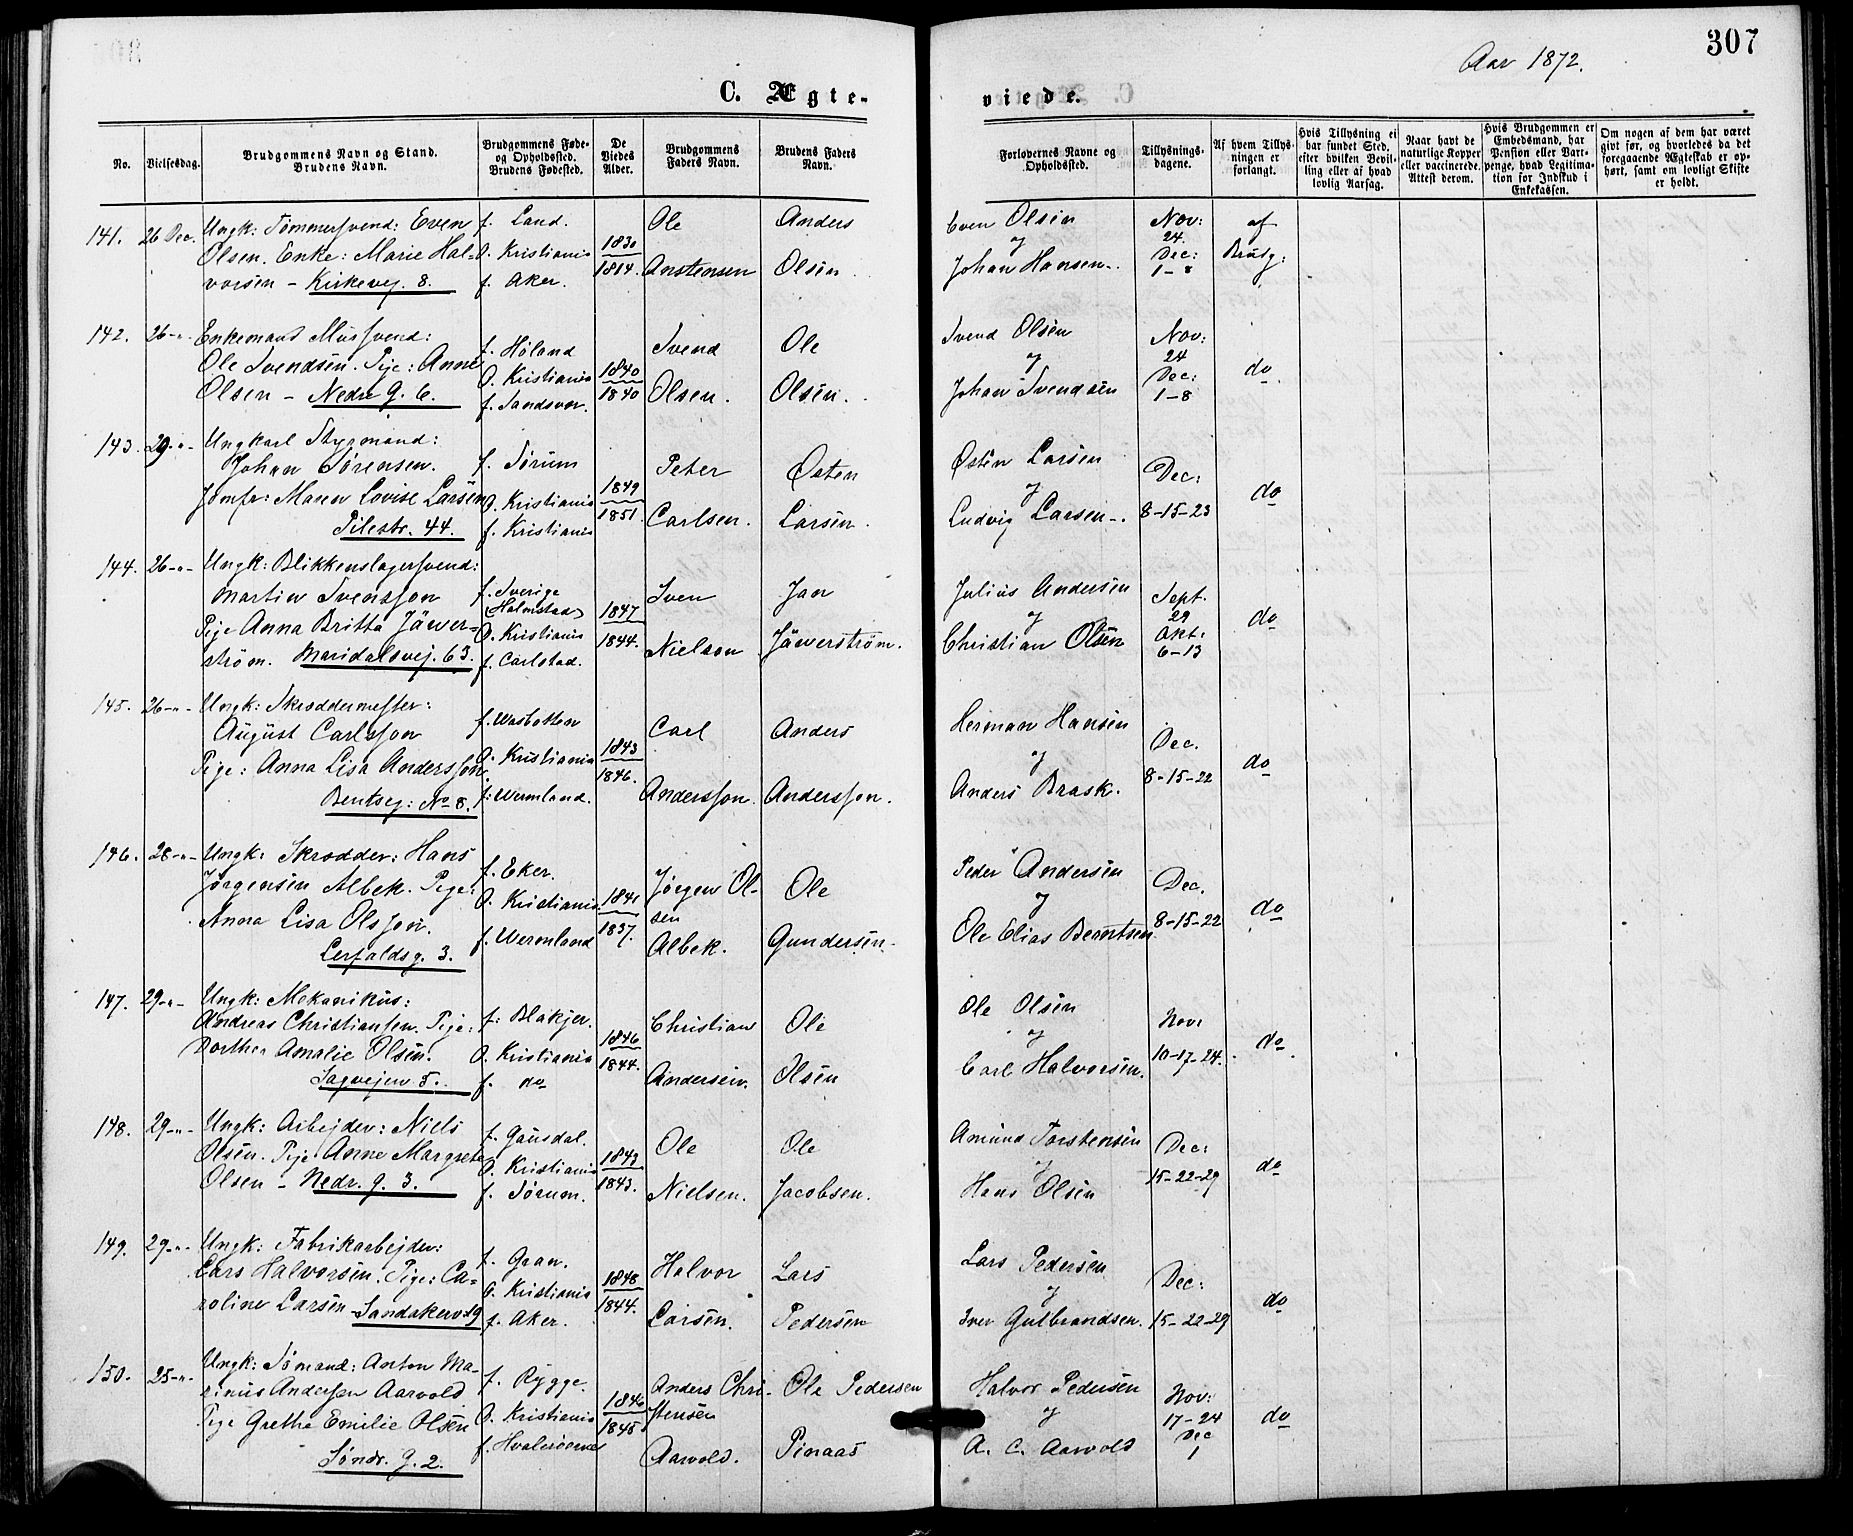 307
Aar 1872.
C. Ægte-
viede.
No.
Vielsesdag.
Brudgommens Navn og Stand.
Brudens Navn.
Brudgommens Føde-
og Opholdssted.
Brudens Fødested.
De
Viedes
Alder.
Brudgommens
Faders Navn.
Brudens Faders
Navn.
Forlovernes Navne og
Opholdssted.
Tillysnings-
dagene.
Af hvem Tillys-
ningen er
forlangt.
Hvis Tillysning ei
har fundet Sted,
efter hvilken Bevil-
ling eller af hvad
lovlig Aarsag.
Naar havt de
naturlige Kopper
eller vaccinerede.
Attest derom.
Hvis Brudgommen er
Embedsmand, har
Pension eller Vart-
penge, hvad Legitima-
tion for Indskud i
Enkekassen.
Om nogen af dem har været
givt før, og hvorledes da det
foregaaende Ægteskab er op-
hørt, samt om lovligt Skifte
er holdt.
141. 26 Dec. Ungk: Tømmersvend: Even
Olsen. Enke: Marie Hal-
vorsen - Kirkevej. 8.
f. Land.
O. Kristiania
f. Aker.
1830
1814.
Ole
Anstensen
Anders
Olsen.
Even Olsen
og
Johan Hansen.
Nov:
24.
Dec:
1-8
af
Brudg:
142. 26-"- Enkemand Mursvend:
Ole Svendsen. Pige: Anne
Olsen - Nedre G. 6.
f. Høland
O. Kristiania
f. Sandsvær.
1840
1840
Svend
Olsen.
Ole
Olsen.
Svend Olsen
og
Johan Svendsen
Nov:
24
Dec:
1-8
do
143. 29-"- Ungkarl Styrmand:
Johan Sørensen.
Jomfr: Maren Lovise Larsen
Pilestr. 44.
f. Sørum
O. Kristiania
f. Kristiania
1849
1851.
Peter
Carlsen.
Østen
Larsen.
Østen Larsen
og
Ludvig Larsen-.
Dec:
8-15-23
do
144. 26-"- Ungk: Blikkenslagersvend:
Martin Svensson
Pige Anna Britta Jäwer-
strøm. Maridalsvej. 63.
f. Sverige
(Halmstad)
O. Kristiania
f. Carlstad.
1847
1844.
Sven
Nielson
Jan
Jäwerstrøm.
Julius Andersen
og
Christian Olsen
Sept.
29
Okt:
6-13
do
145. 26-"- Ungk: Skræddermester:
August Carlsson
Pige: Anna Lisa Andersson.
Bentseg: No 8.
f. Wasbotten
O. Kristiania
f: Wermland.
1843
1846.
Carl
Andersson.
Anders
Andersson.
Herman Hansen
og
Anders Brask.
Dec.
8-15-22
do
146. 28-"- Ungk: Skrædder: Hans
Jørgensen Albek. Pige:
Anna Lisa Olsson.
Lerfaldsg. 3.
f. Eker.
O. Kristiania
f. Wermland
1841
1837.
Jørgen Ol-
sen
Albek.
Ole
Gundersen.
Peder Andersen
og
Ole Elias Berntsen
Dec.
8-15-22
do
147. 29-"- Ungk: Mekanikus:
Andreas Christiansen. Pige:
Dorthea Amalie Olsen.
Sagvejen 5.
f: Blakjer.
O. Kristiania
f. do
1846
1844.
Christian
Andersen.
Ole
Olsen
Ole Olsen
og
Carl Halvorsen.
Nov:
10-17-24.
do
148. 29-"- Ungk: Arbejder: Niels
Olsen. Pige Anne Margrete
Olsen - Nedr. G. 3.
f. Gausdal.
O. Kristiania
f. Sørum.
1843
1843.
Ole
Nielsen.
Ole
Jacobsen.
Amund Torstensen
og
Hans Olsen
Dec:
15-22-29
do
149. 29-"- Ungk: Fabrikarbejder:
Lars Halvorsen. Pige: Ca-
roline Larsen - Sandakerv. 19
f. Gran.
O. Kristiania
f. Aker.
1848
1844.
Halvor
Larsen.
Lars
Pedersen
Lars Pedersen
og
Iver Gulbrandsen.
Dec:
15-22-29
do
150. 25-"- Ungk: Sømand: Anton Ma-
rinus Andersen Aarvold
Pige Grethe Emilie Olsen
Søndr. G. 2.
f. Rygge.
O. Kristiania
f. Hvaløerne
1846
1845
Anders Chri-
stensen
Aarvold.
Ole Pedersen
Pinaas
Halvor Pedersen
og
A. C. Aarvold
Nov:
17-24
Dec
1
do